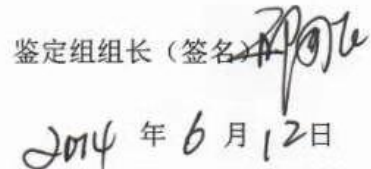 鉴定组组长（签名）
2014 年 6 月 12日